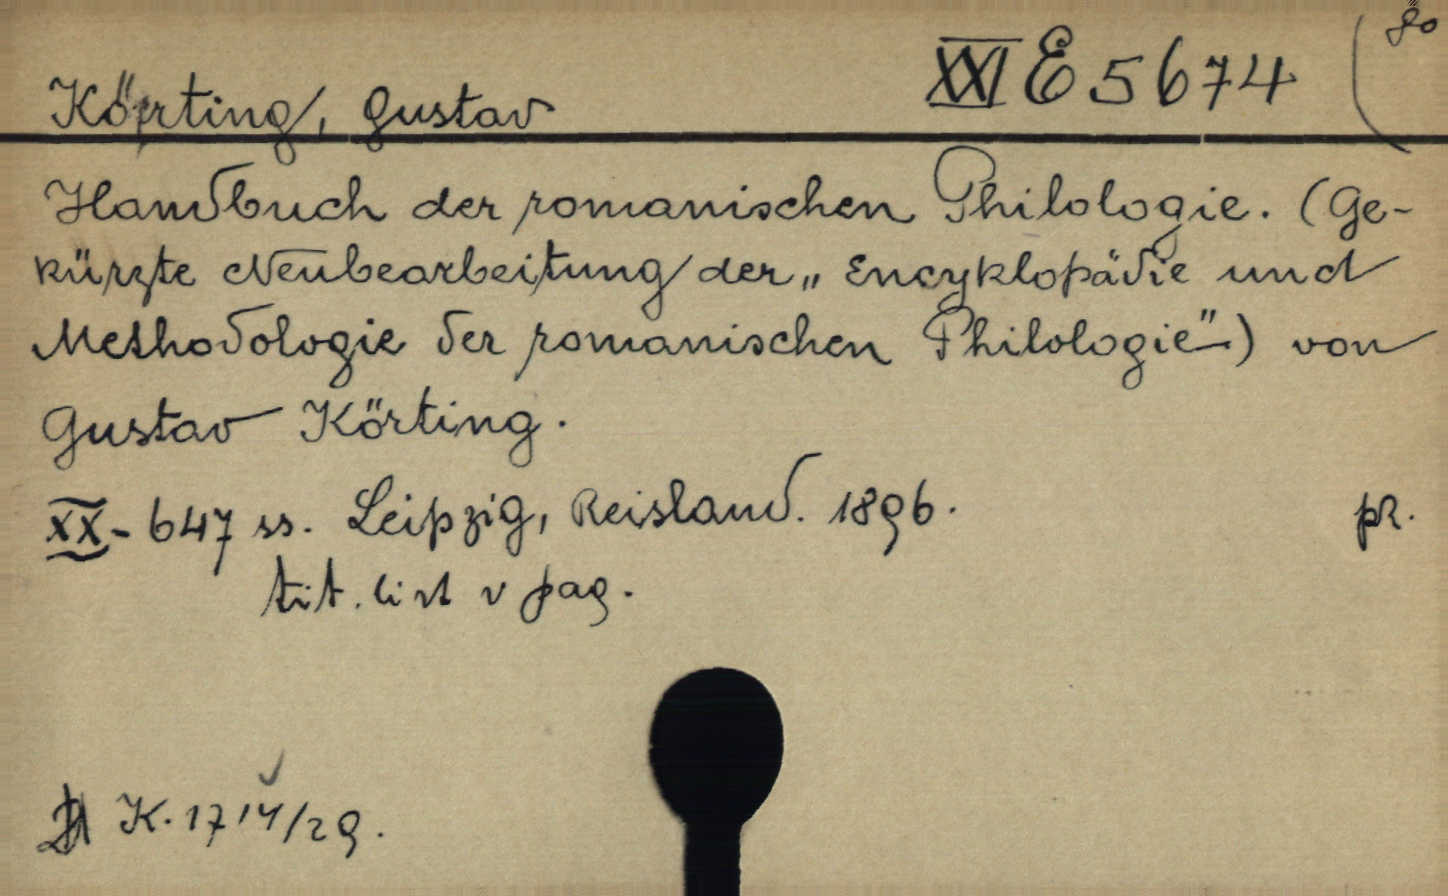 XXI E 5674 (8º
Körting, Gustav
Handbuch der romanischen Philologie. (Ge-
kürzte Neubearbeitung der „Encyklopädie und
Methodologie der romanischen Philologie") von
Gustav Körting.
XX - 647 ss. Leipzig, Reisland. 1896.
pR.
tit. list v pag.
K. 1714/29.